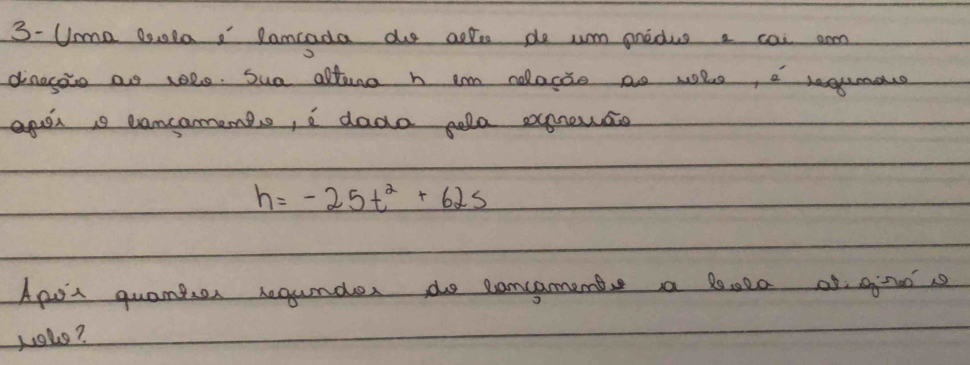 3- Uma bola é lançada do alto de um prédio e cai em
direção ao solo. Sua altura h em relação ao solo, é segundos
após o lançamento, é dada pela expressão
h = -25t² + 625
Após quantos segundos do lançamento a bola atingirá o
solo?